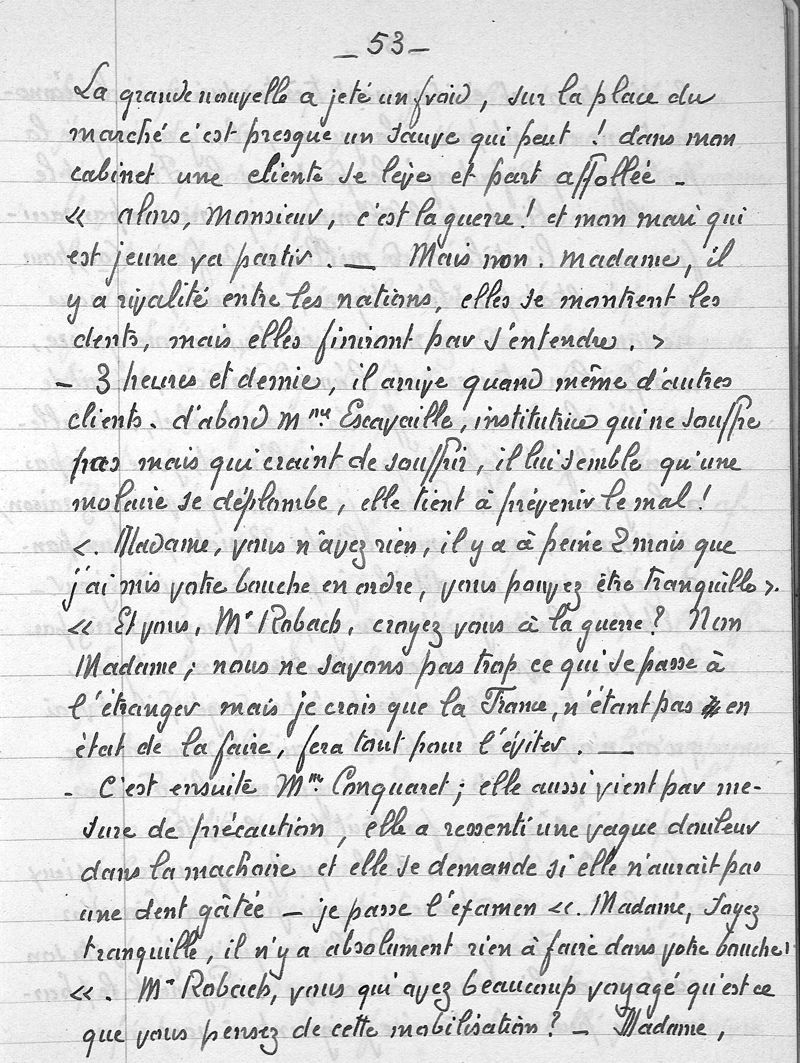 _ 53 _
La grande nouvelle a jeté un froid, sur la place du
marché c'est presque un sauve qui peut ! dans mon
cabinet une cliente se lève et part affollée -
« alors, Monsieur, c'est la guerre ! et mon mari qui
est jeune va partir. — Mais non. madame, il
y a rivalité entre les nations, elles se montrent les
dents, mais elles finiront par s'entendre. >
- 3 heures et demie, il arrive quand même d'autres
clients. d'abord Mme Escavaille, institutrice qui ne souffre
pas mais qui craint de souffrir, il lui semble qu'une
molaire se déplombe, elle tient à prévenir le mal !
<. Madame, vous n'avez rien, il y a à peine 2 mois que
j'ai mis votre bouche en ordre, vous pouvez être tranquille >.
« Et vous, Mr Robach, croyez vous à la guerre ? Non
Madame ; nous ne savons pas trop ce qui se passe à
l'étranger mais je crois que la France, n'étant pas en
état de la faire, fera tout pour l'éviter. —
- C'est ensuite Mme Conquaret ; elle aussi vient par me-
sure de précaution, elle a ressenti une vague douleur
dans la machoire et elle se demande si elle n'aurait pas
une dent gâtée — je passe l'examen «. Madame, soyez
tranquille, il n'y a absolument rien à faire dans votre bouche !
«. Mr Robach, vous qui avez beaucoup voyagé qu'est ce
que vous pensez de cette mobilisation ? — Madame,